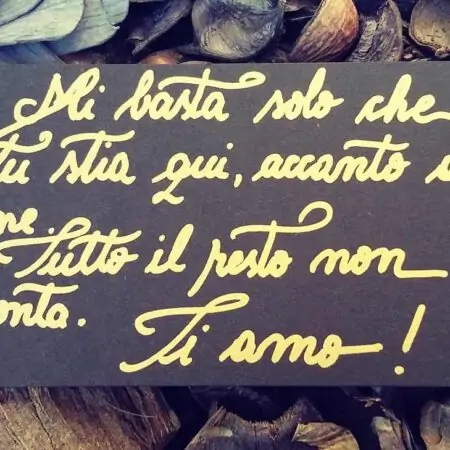 Mi basta solo che
tu stia qui, accanto a
me.
Tutto il resto non
conta.
Ti amo!